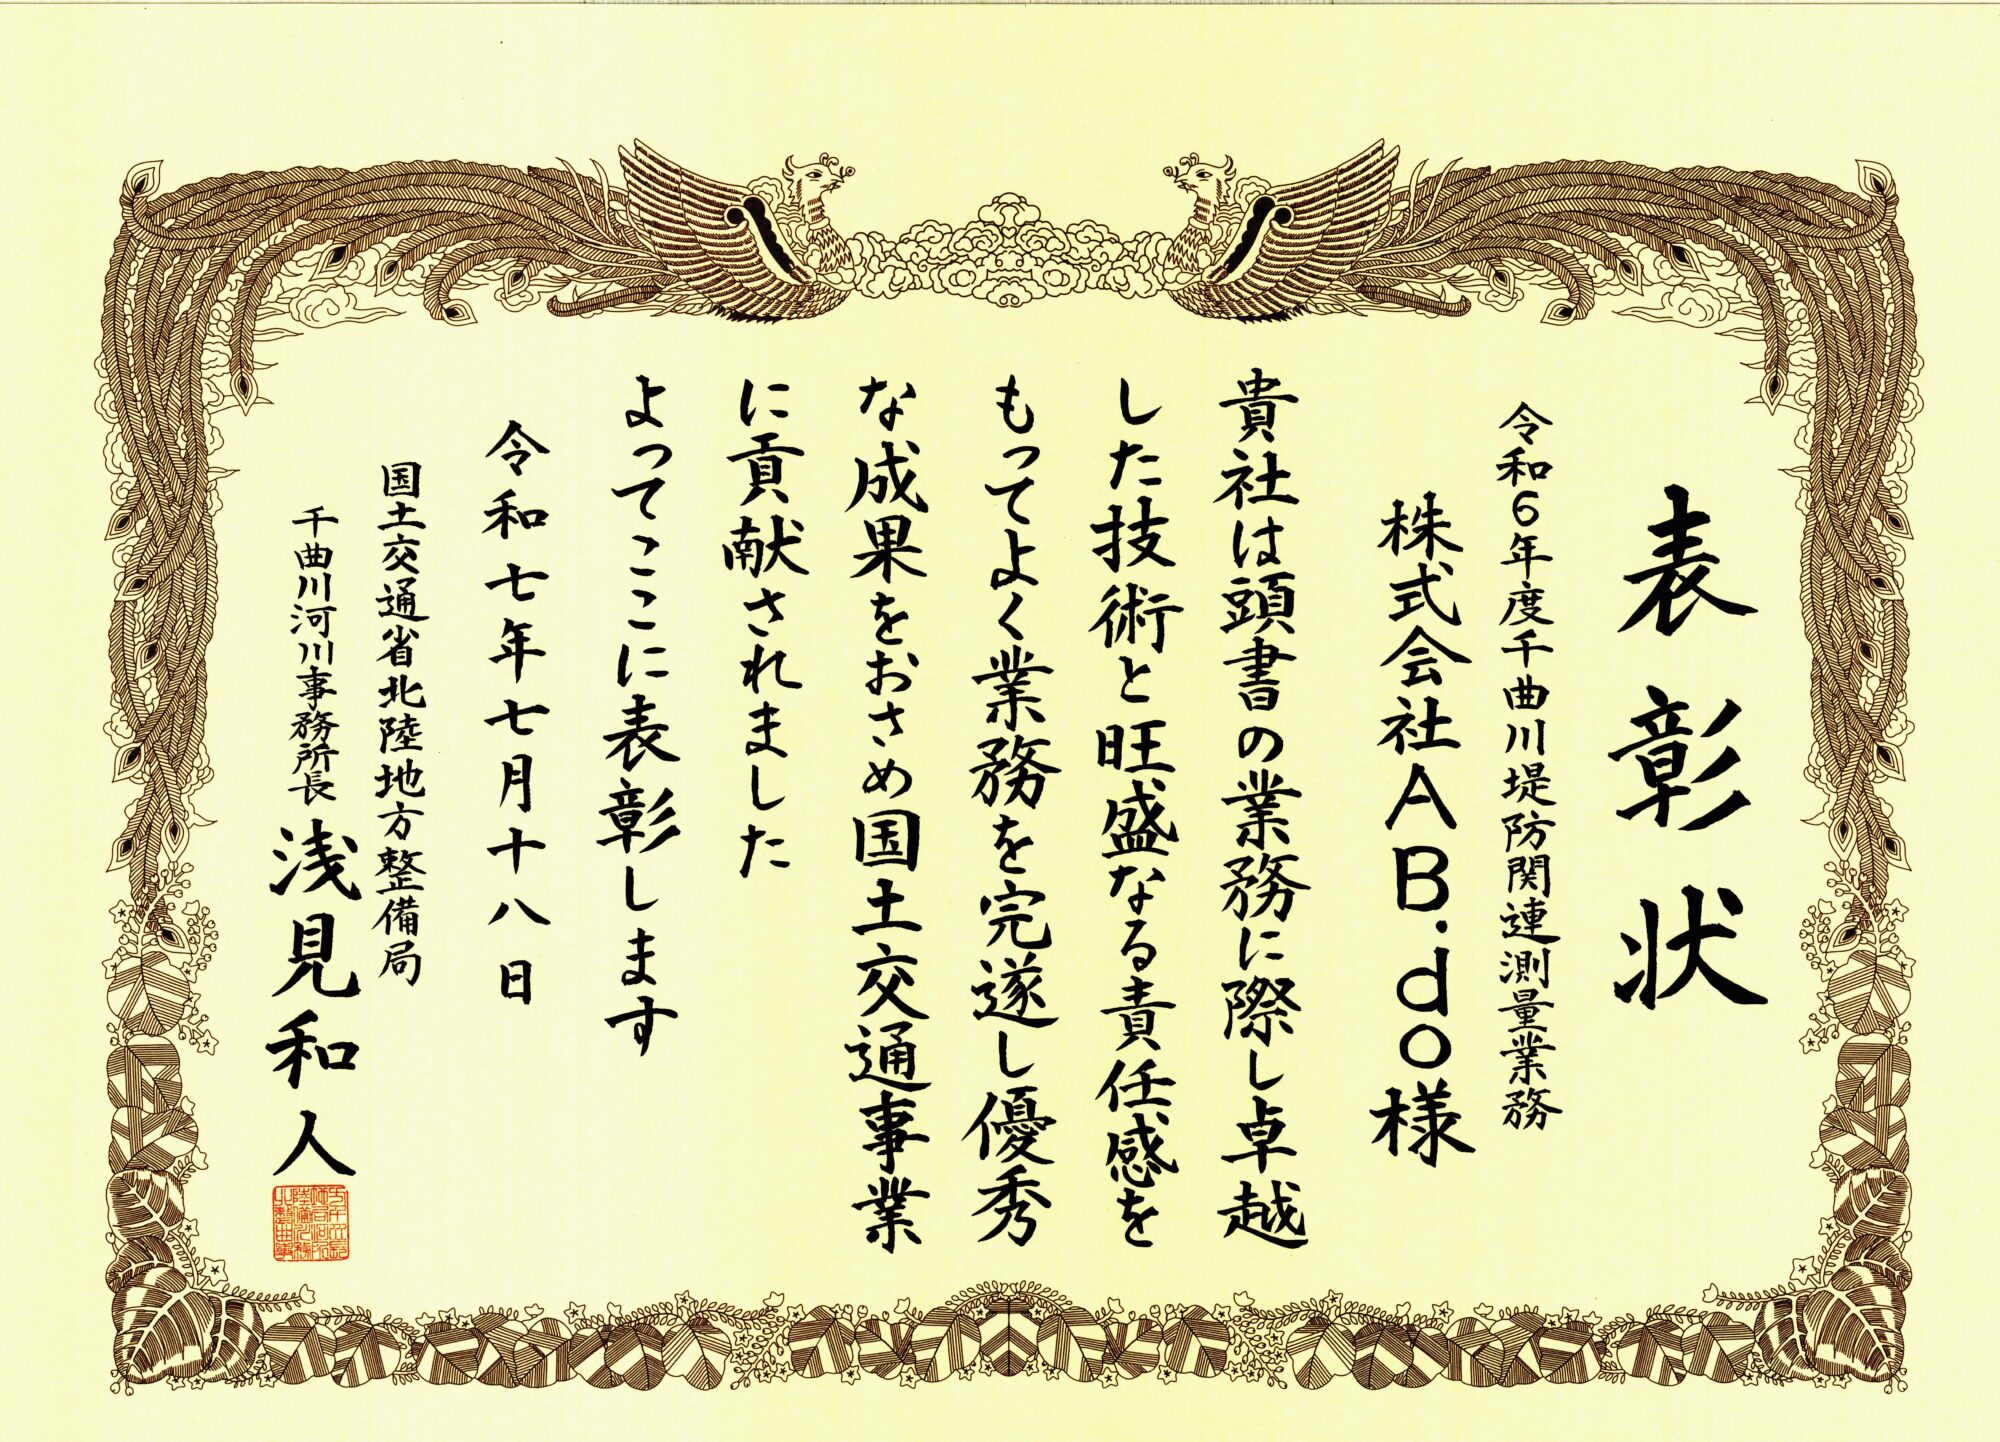 表彰状
令和6年度千曲川堤防関連測量業務
株式会社AB.do様
貴社は頭書の業務に際し卓越
した技術と旺盛なる責任感を
もってよく業務を完遂し優秀
な成果をおさめ国土交通事業
に貢献されました
よってここに表彰します
令和七年七月十八日
国土交通省北陸地方整備局
千曲川河川事務所長 浅見和人